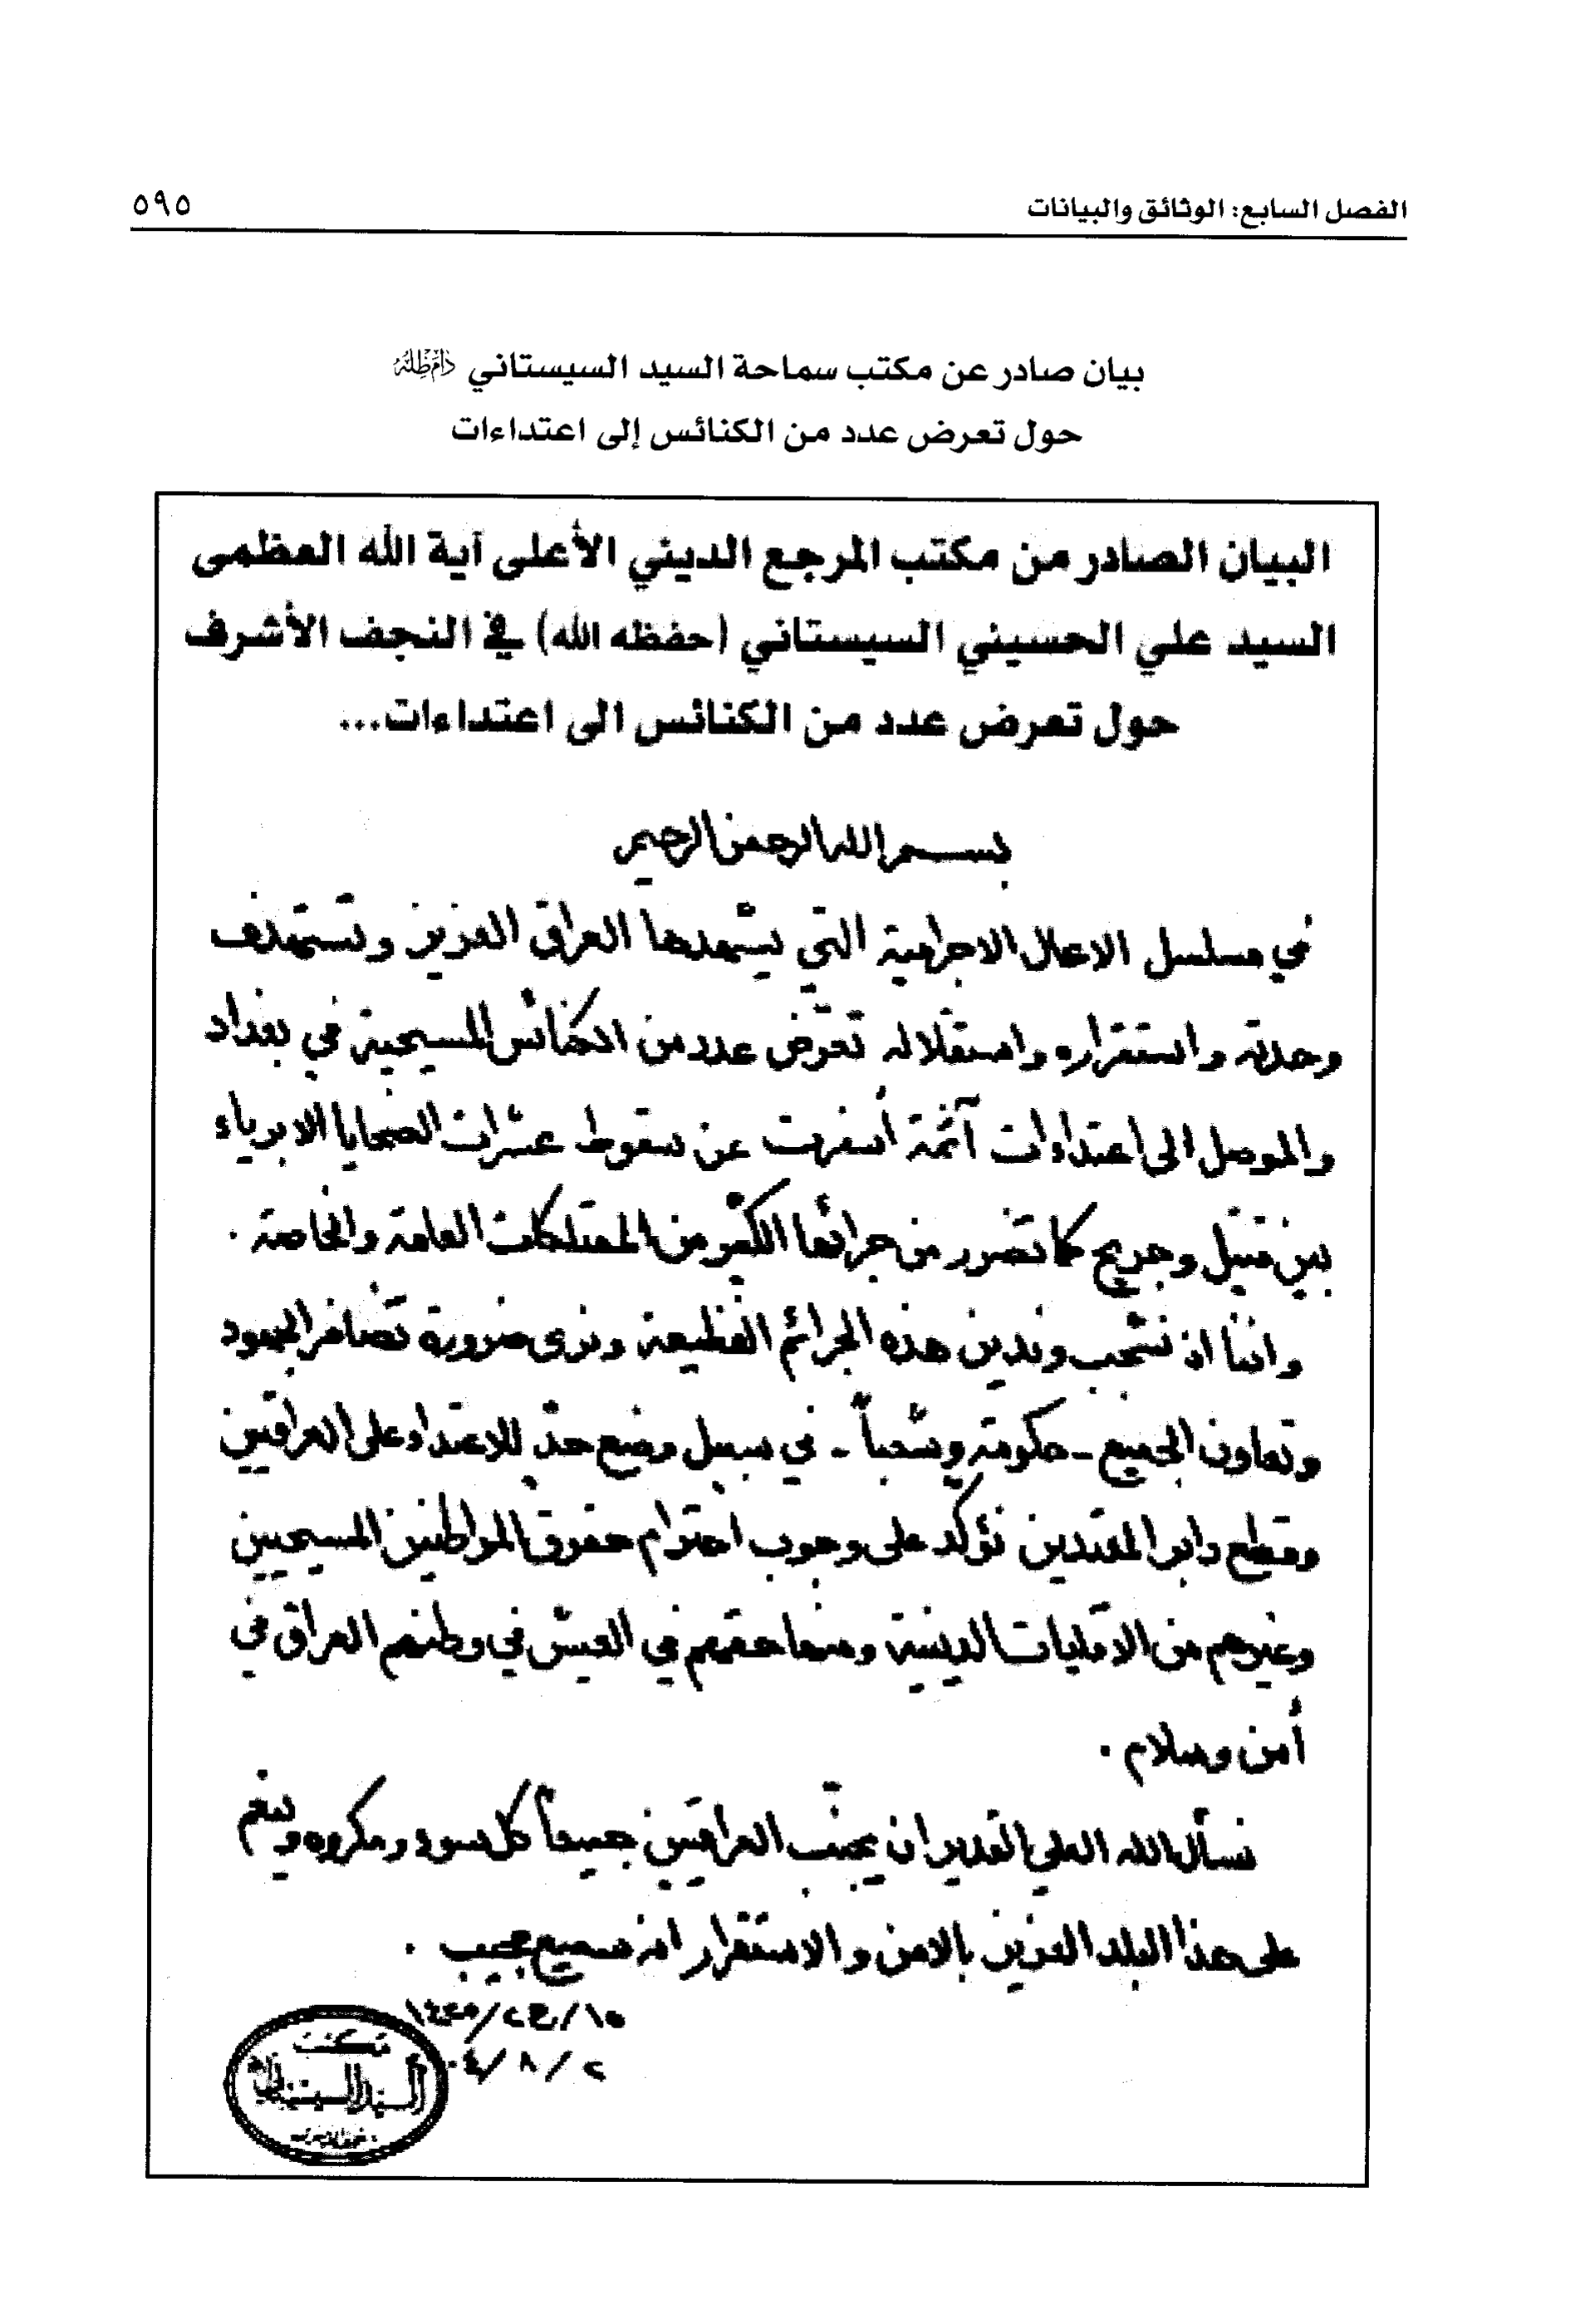 الفصل السابع: الوثائق والبيانات ٥٩٥
بيان صادر عن مكتب سماحة السيد السيستاني دام ظله
حول تعرض عدد من الكنائس إلى اعتداءات
البيان الصادر من مكتب المرجع الديني الأعلى آية الله العظمى
السيد علي الحسيني السيستاني (حفظه الله) في النجف الأشرف
حول تعرض عدد من الكنائس الى اعتداءات...
بسم الله الرحمن الرحيم
في مسلسل الاعمال الاجرامية التي يشهدها العراق العزيز وتستهدف
وحدته واستقراره واستقلاله تعرّض عدد من الكنائس المسيحية في بغداد
والموصل الى اعتداءات آثمة أسفرت عن سقوط عشرات الضحايا الابرياء
بين قتيل وجريح كما تضرر من جرائها الكثير من الممتلكات العامة والخاصة .
واننا اذ نشجب وندين هذه الجرائم الفظيعة ونرى ضرورة تضافر الجهود
وتعاون الجميع - حكومة وشعباً - في سبيل وضع حدّ للاعتداء على العراقيين
وقطع دابر المعتدين نؤكد على وجوب احترام حقوق المواطنين المسيحيين
وغيرهم من الاقليات الدينية ومنها حقهم في العيش في وطنهم العراق في
أمن وسلام .
نسأل الله العلي القدير ان يجنّب العراقيين جميعاً كل سوء ومكروه وينعم
على هذا البلد العزيز بالامن والاستقرار انه سميع مجيب .
١٥/ج٢/١٤٢٥
٢/٨/٠٤
مكتب
السيد السيستاني